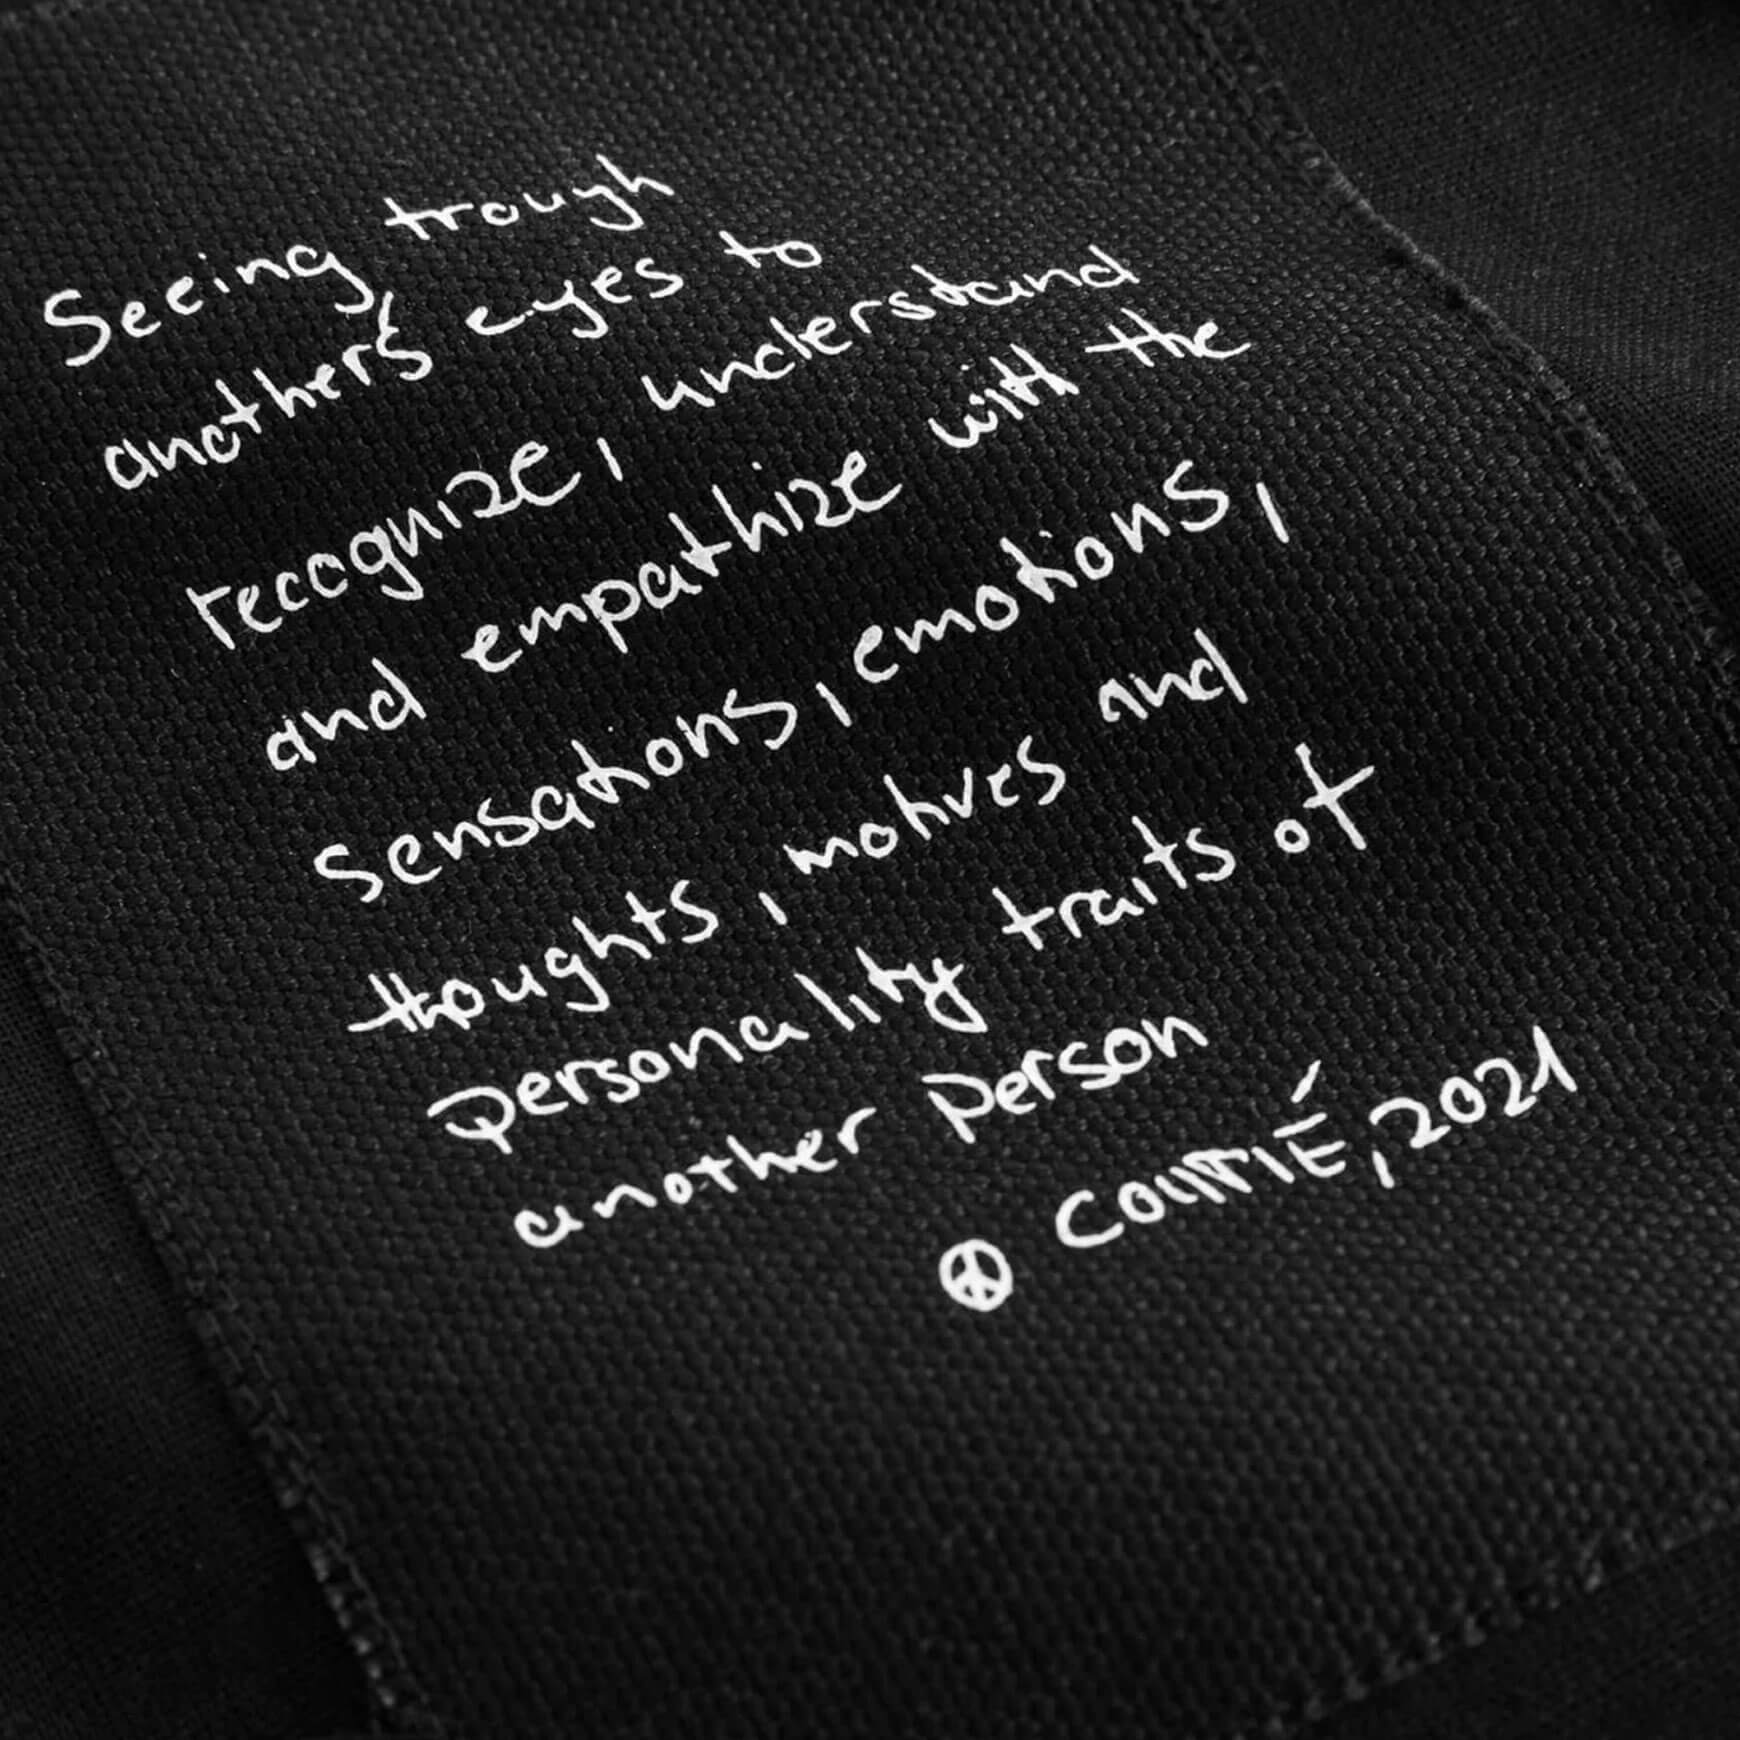 Seeing trough
another's eyes to
recognize, understand
and empathize with the
sensations, emotions,
thoughts, motives and
personality traits of
another person
2021